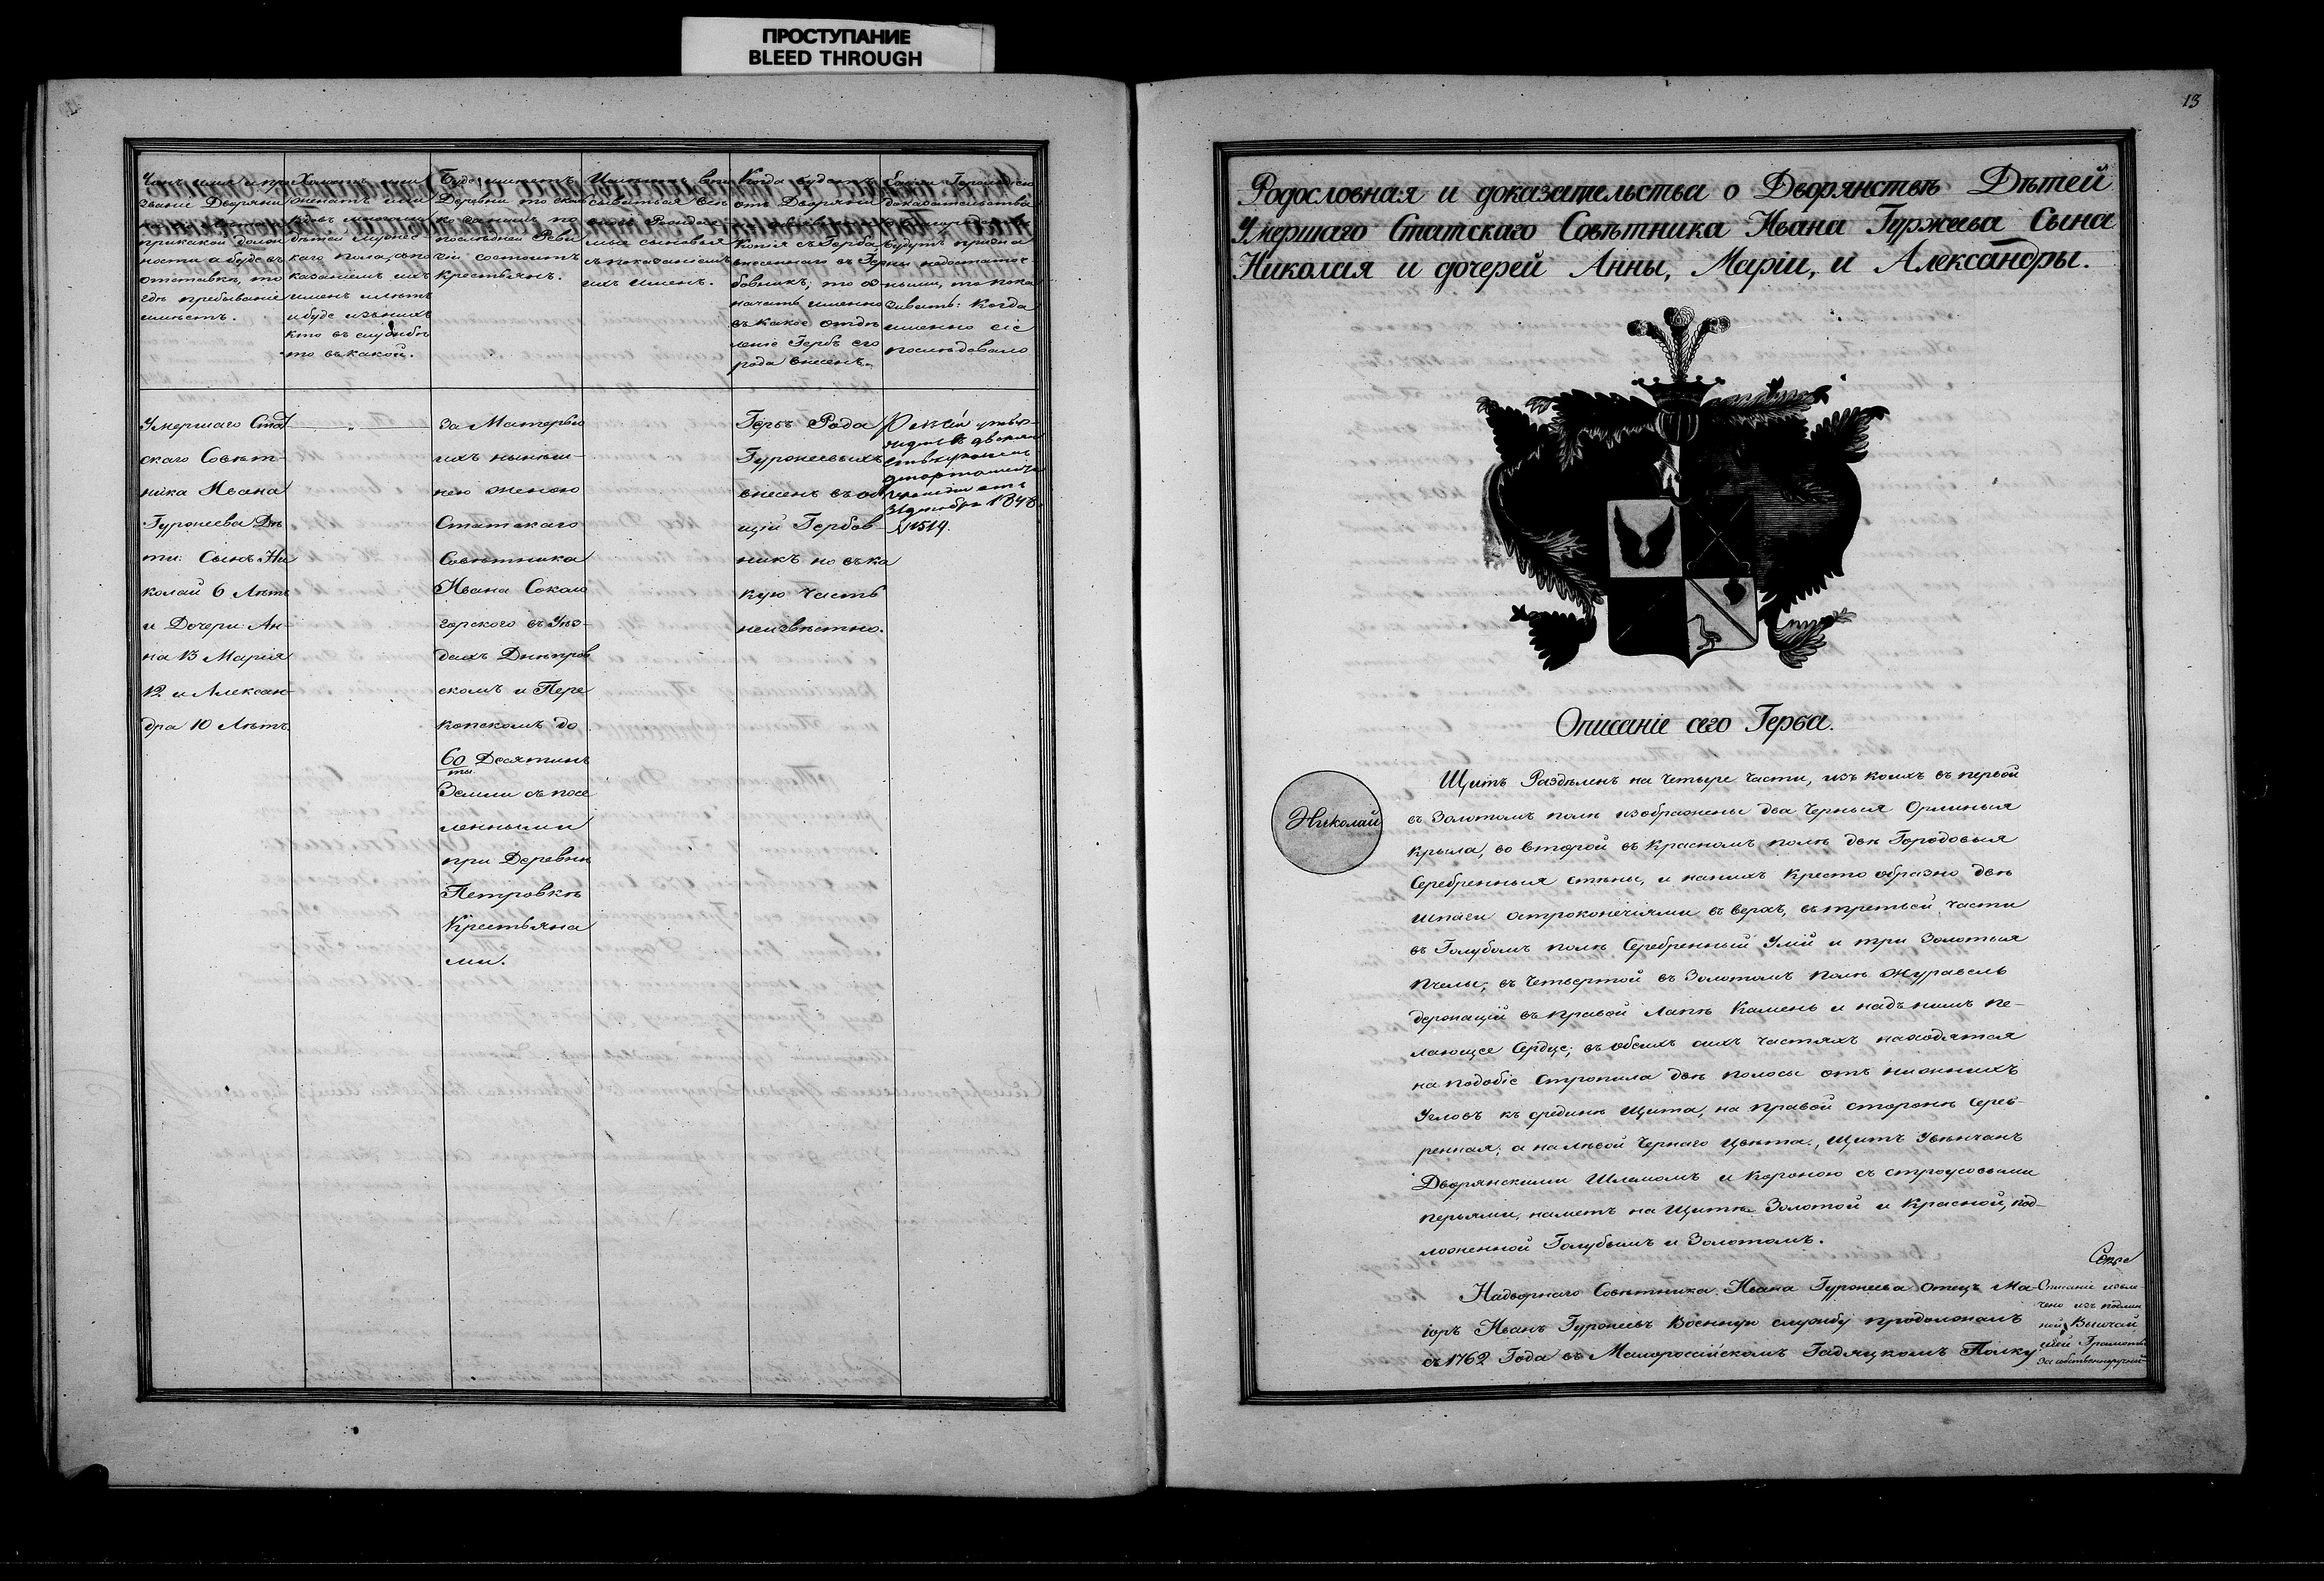 ПРОСТУПАНИЕ
BLEED THROUGH
13
Чинъ имя и про
званіе Дворяни
прикакой долж
ности а буде въ
отставкѣ, то
гдѣ пребываніе
имѣетъ.
Холостъ или
женатъ или
вдовъ
дѣтей мужес
каго пола, съпо
казаніемъ ихъ
именъ лѣтъ
и буде изънихъ
кто въ службѣ
то въ какой.
Буде имѣетъ
Деревни то скол
ко за нимъ по
послѣдней Реви
зіи состоитъ
крестьянъ.
съпоказаніемъ
ихъ именъ.
Когда будетъ
отъ Дворяни
Копія съ Герба,
внесеннаго въ Гер
бовникъ; то оз
начать именно
въ какое отдѣ
леніе Гербъ его
рода внесенъ.
Герольдіею
доказательства
будутъ призна
ны недостаточ
ными, то пока
зывать: когда
именно сіе
послѣдовало
Умершаго Стат
скаго Совѣт-
ника Ивана
Гуржеева Дѣ
ти: Сынъ Ни
колай 6 Лѣтъ
и Дочери: Ан-
на 13 Марія
12 и Алексан-
дра 10 Лѣтъ.
За Матерью
ихъ нынѣш-
нею женою
Статскаго
Совѣтника
Ивана Соколо
горского въ Уѣз-
дахъ Днѣпров
скомъ и Пере
копскомъ до
60 Десятинъ
ты.
Земли съ посе
ленными
при Деревнѣ
Петровкѣ
Крестьяна
ми.
Гербъ Рода
Гуржеевыхъ
внесенъ въ об
щій Гербов-
никъ но въ ка
кую часть
неизвѣстно.
1848.
№ 1514.
Родословная и доказательства о Дворянствѣ Дѣтей
Умершаго Статскаго Совѣтника Ивана Гуржеева Сына
Николая и дочерей Анны, Маріи, и Александры.
Описаніе сего Герба.
Щитъ Раздѣленъ на четыре части, изъ коихъ въ первой
въ Золотомъ полѣ изображены два Черныя Орлиныя
Николай
Крыла, во второй въ Красномъ полѣ двѣ Городовыя
Серебренныя стѣны, и нанихъ Кресто образно двѣ
шпаги остроконечіями въ верхъ, въ третьей части
въ Голубомъ полѣ Серебренный Улій и три Золотыя
пчелы; въ Четвертой въ Золотомъ полѣ Журавель
держащій въ правой Лапѣ Камень и надъ нимъ пе-
лающее Сердце; въ обеихъ сихъ частяхъ находятся
на подобіе стропила двѣ полосы отъ нижнихъ
Угловъ къ срединѣ Щита, на правой сторонѣ Сереб-
ренная, а на лѣвой Чернаго цвѣта, Щитъ Увѣнчанъ
Дворянскими Шлемомъ и Короною съ строусовыми
перьями, наметъ на Щитѣ Золотой и Красной, под-
ложенной Голубымъ и Золотомъ.
Надворнаго Совѣтника Ивана Гуржеева Отецъ Ма-
іоръ Иванъ Гуржеевъ Военную службу продолжалъ
съ 1762 Года въ Малороссійскомъ Гадяцкомъ Полку
Списаніе извле-
чено изъ подлин
ной Высочай
шей Грамоты
за собственноручн